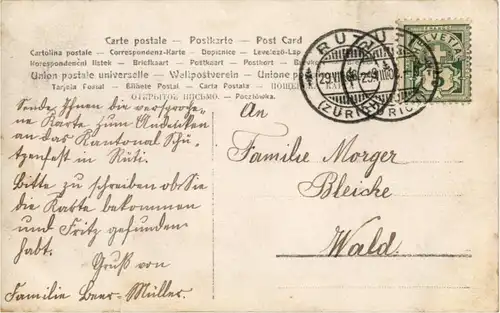 Carte postale - Postkarte - Post Card
Cartolina postale - Correspondenz-Karte - Dopisnice - Levelező-Lap
Korespondenční listek - Briefkaart - Postkaart - Postkort - Brevkort
Union postale universelle - Weltpostverein - Unione postale
Tarjeta Postal - Bilhete Postal - Carta Postala
ОТКРЫТОЕ ПИСЬМО. - Pocztówka.
RUTI
(ZÜRICH)
HELVETIA
5
Sende Ihnen die versproche-
ne Karte zum Andenken
an das Kantonal Schü-
tzenfest in Rüti.
Bitte zu schreiben ob Sie
die Karte bekommen
und Fritz gefunden
habt.
Gruß von
Familie Beer-Müller.
An
Familie Morger
Bleiche
Wald.